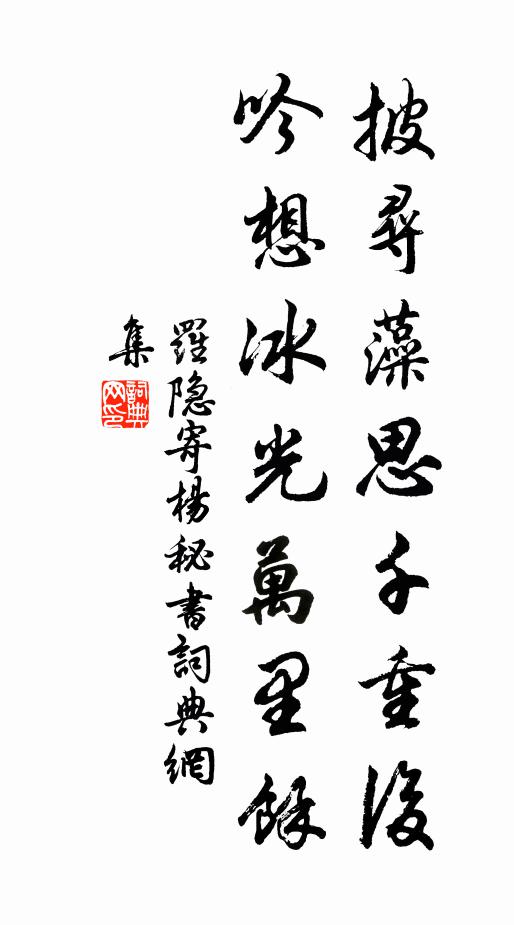 披尋藻思千重後
吟想冰光萬里餘
羅隐寄楊秘書詞典網
集
詞典
网印